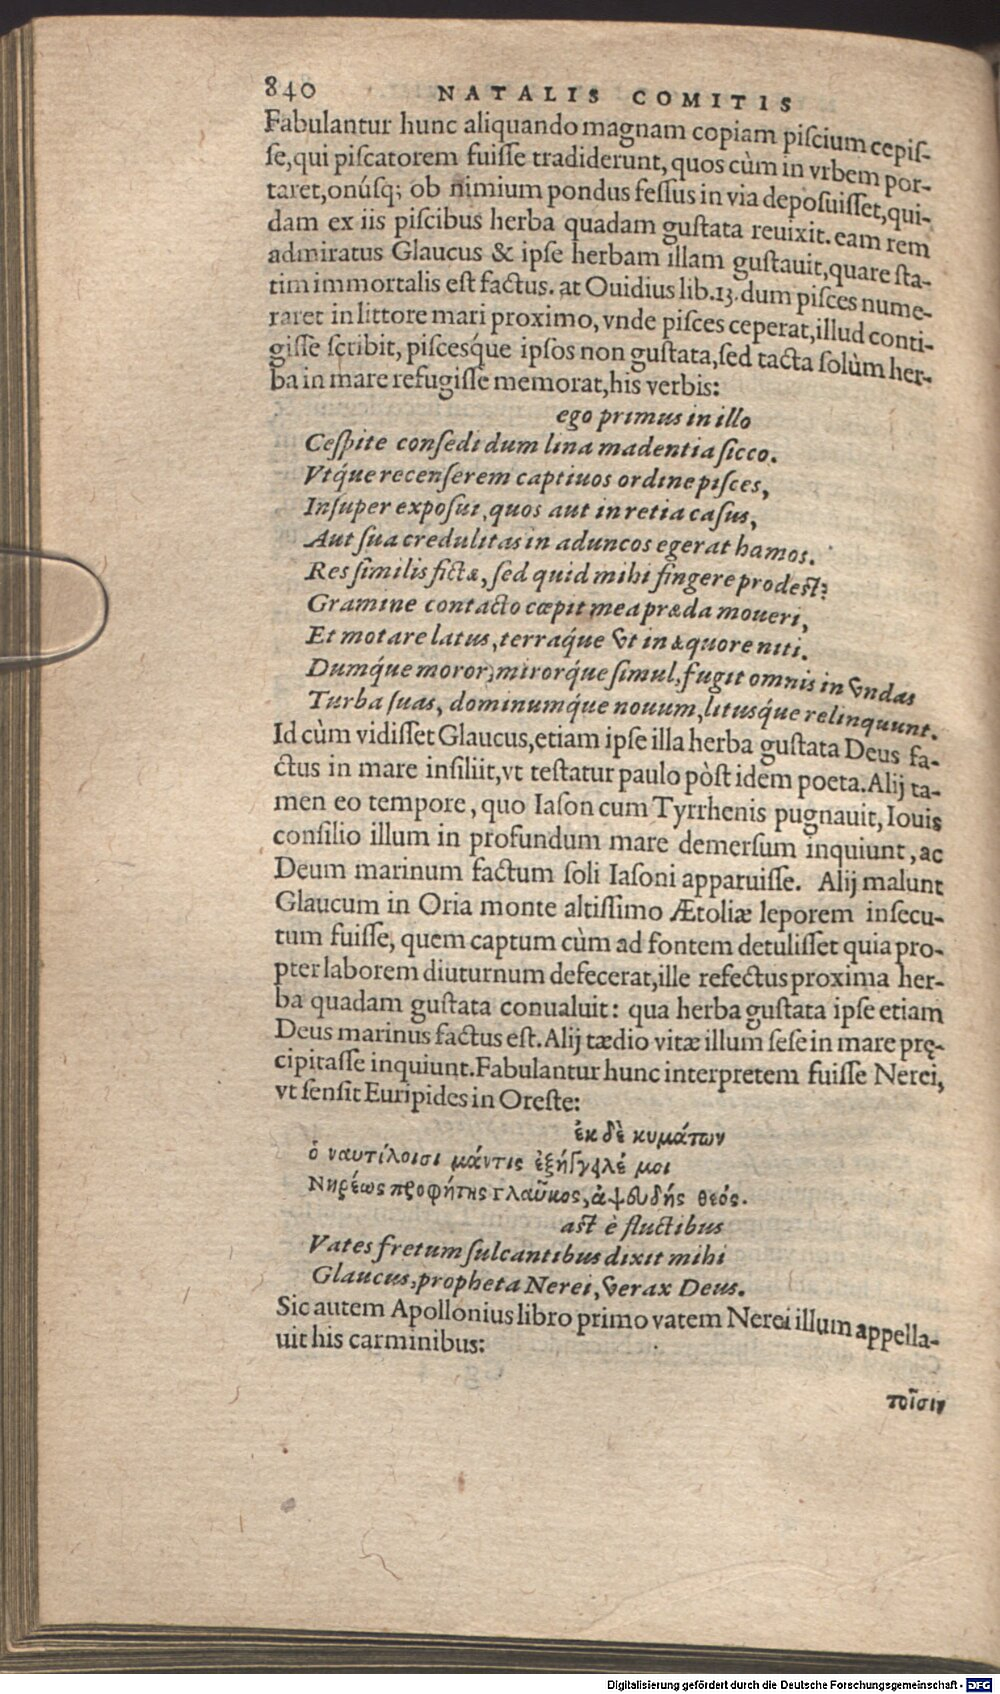 840 NATALIS COMITIS
Fabulantur hunc aliquando magnam copiam piſcium cepiſ-
ſe, qui piſcatorem fuiſſe tradiderunt, quos cùm in vrbem por-
taret, onúſq; ob nimium pondus feſſus in via depoſuiſſet, qui-
dam ex iis piſcibus herba quadam guſtata reuixit. eam rem
admiratus Glaucus & ipſe herbam illam guſtauit, quare ſta-
tim immortalis eſt factus. at Ouidius lib. 13. dum piſces nume-
raret in littore mari proximo, vnde piſces ceperat, illud conti-
giſſe ſcribit, piſcesque ipſos non guſtata, ſed tacta ſolùm her-
ba in mare refugiſſe memorat, his verbis:
ego primus in illo
Ceſpite conſedi dum lina madentia ſicco.
Vtq́ue recenſerem captiuos ordine piſces,
Inſuper expoſui, quos aut in retia caſus,
Aut ſua credulitas in aduncos egerat hamos.
Res ſimilis fictæ, ſed quid mihi fingere prodeſt?
Gramine contacto cœpit mea præda moueri,
Et motare latus, terraq́ue vt in æquore niti.
Dumq́ue moror, mirorq́ue ſimul, fugit omnis in vndas
Turba ſuas, dominumq́ue nouum, litusq́ue relinquunt.
Id cùm vidiſſet Glaucus, etiam ipſe illa herba guſtata Deus fa-
ctus in mare inſiliit, vt teſtatur paulo pòſt idem poeta. Alij ta-
men eo tempore, quo Iaſon cum Tyrrhenis pugnauit, Iouis
conſilio illum in profundum mare demerſum inquiunt, ac
Deum marinum factum ſoli Iaſoni apparuiſſe. Alij malunt
Glaucum in Oria monte altiſſimo Ætoliæ leporem inſecu-
tum fuiſſe, quem captum cùm ad fontem detuliſſet quia pro-
pter laborem diuturnum defecerat, ille refectus proxima her-
ba quadam guſtata conualuit: qua herba guſtata ipſe etiam
Deus marinus factus eſt. Alij tædio vitæ illum ſeſe in mare prę-
cipitaſſe inquiunt. Fabulantur hunc interpretem fuiſſe Nerei,
vt ſenſit Euripides in Oreſte:
ἐκ δὲ κυμάτων
ὁ ναυτίλοισι μάντις ἐξήγγειλέ μοι
Νηρέως προφήτης γλαῦκος, ἀψευδής θεός.
aſt è fluctibus
Vates fretum ſulcantibus dixit mihi
Glaucus, propheta Nerei, verax Deus.
Sic autem Apollonius libro primo vatem Nerei illum appella-
uit his carminibus:
τοῖσιν
Digitalisierung gefördert durch die Deutsche Forschungsgemeinschaft - DFG